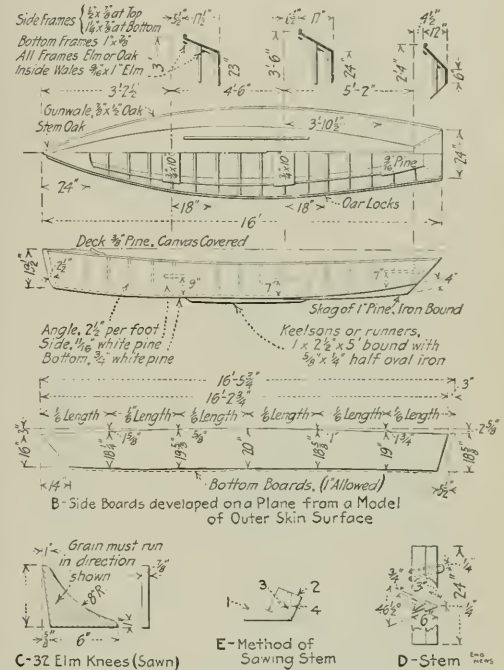 Side Frames { ½"x⅞" at Top
1¼"x⅞" at Bottom
Bottom Frames 1"x⅞"
All Frames Elm or Oak
Inside Wales 9/16"x1" Elm
5½" 17½"
3' 23"
6½" 17"
3'-6" 24"
4½"
12"
2'4" 6"
3'2½" 4'-6" 5'-2"
Gunwale, ⅞"x½" Oak
Stem Oak
3'-10½"
9/16" Pine
24"
24" 18" 18" Oar Locks
16'
Deck ⅜" Pine. Canvas Covered
19½" 2½" 9" 7" 7" 4"
Skag of 1" Pine. Iron Bound
Angle, 2½" per foot
Side, 11/16" white pine
Bottom, ¾" white pine
Keelsons or runners,
1 x 2½" x 5' bound with
⅝"x¼" half oval iron
16'-5¾"
16'-2¾" 3"
⅙ Length ⅙ Length ⅙ Length ⅙ Length ⅙ Length ⅙ Length
16" 3" 1⅝" 18¼" ⅝" 19⅝" 20" 1" 18⅝" 1¾" 19" 2⅝" 18⅝"
14" Bottom Boards, (1" Allowed) 5½"
B-Side Boards developed on a Plane from a Model
of Outer Skin Surface
1" Grain must run
in direction
shown
⅞"
8"R.
⅝" 6" 1"
C-32 Elm Knees (Sawn)
1 3 2 4
E-Method of
Sawing Stem
¾" 3" ¼"
46½° 24"
6" ¼"
D-Stem
ENG
MENS